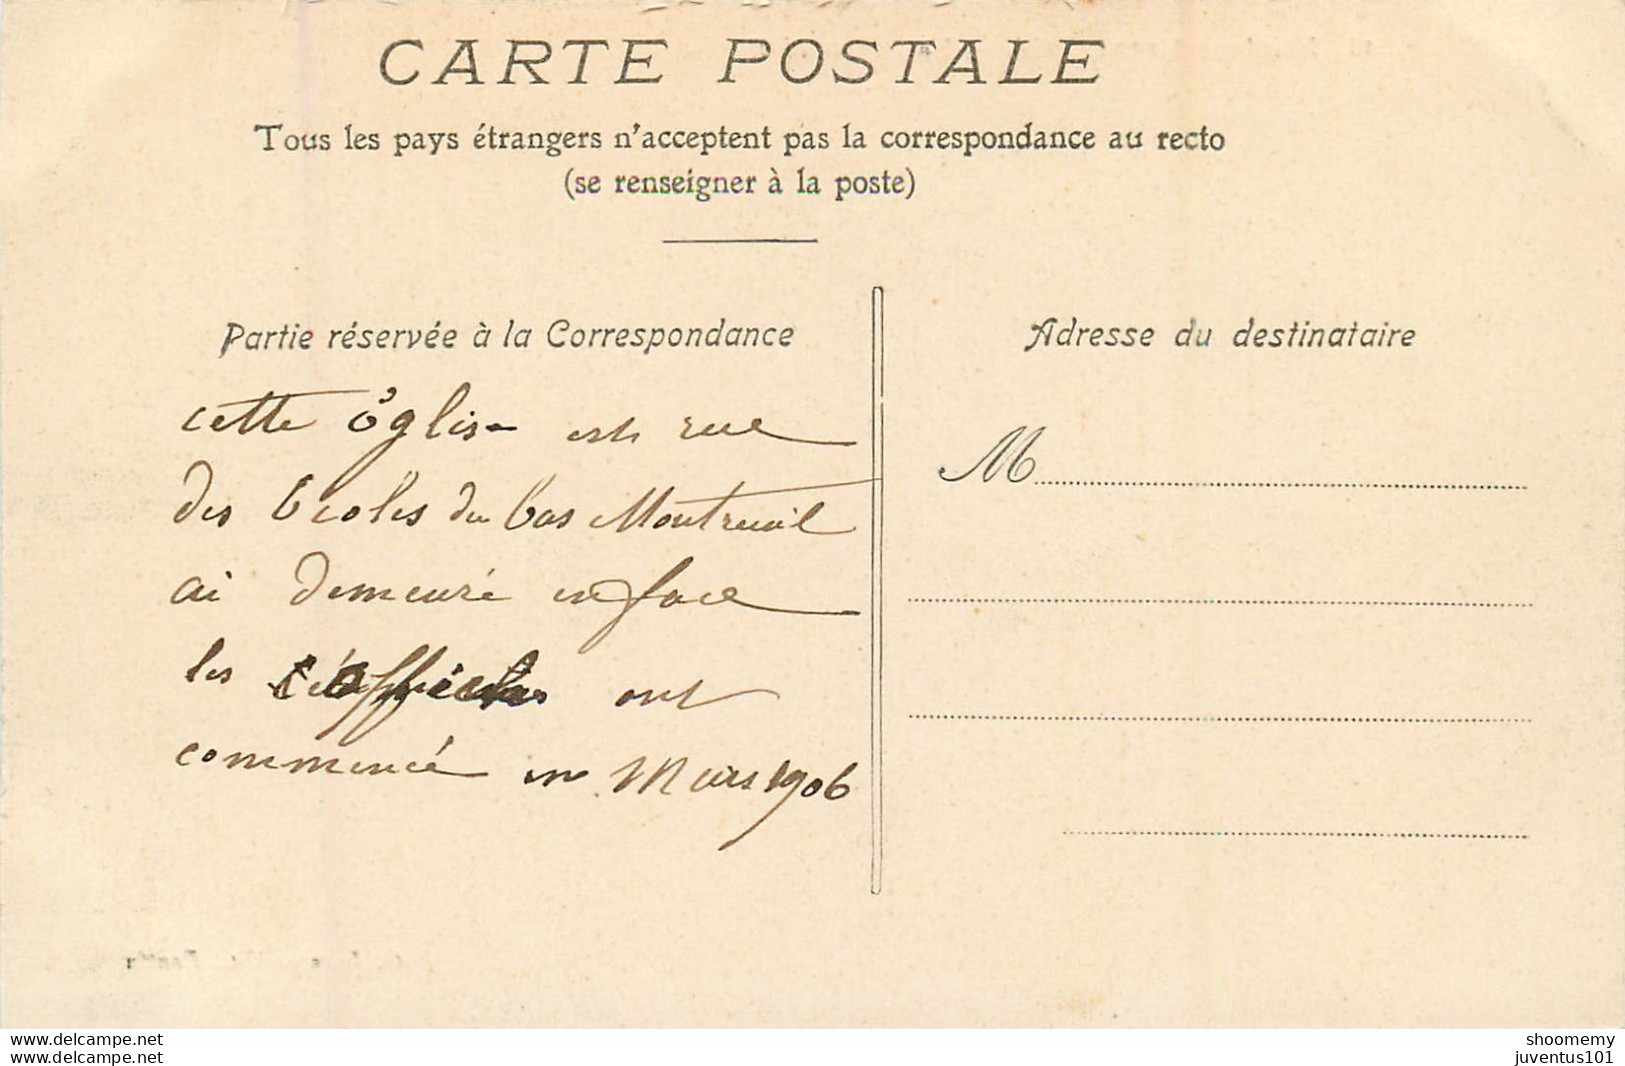 CARTE POSTALE
Tous les pays étrangers n'acceptent pas la correspondance au recto
(se renseigner à la poste)
Partie réservée à la Correspondance
cette Église est rue
des Écoles du bas Montreuil
ai demeuré en face
les ont
commencé en Mars 1906
Adresse du destinataire
M
www.delcampe.net
www.delcampe.net
shoomemy
juventus101